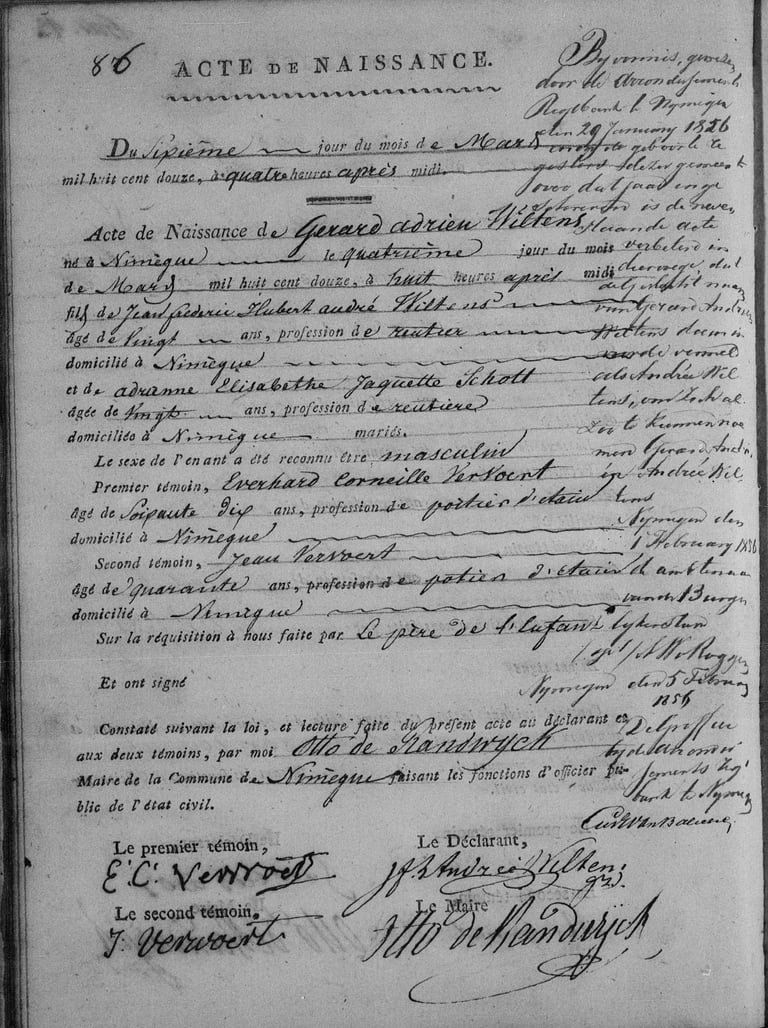 86
ACTE DE NAISSANCE.
Du Sixième jour du mois de Mars
mil huit cent douze, à quatre heures après midi.
Acte de Naissance de Gerard adrien Wiltens
né à Nimègue le quatrième jour du mois
de Mars mil huit cent douze, à huit heures après midi
fils de Jean frederic Hubert andré Wiltens
âgé de vingt ans, profession de rentier
domicilié à Nimègue
et de adrianne Elisabethe Jaquette Schott
âgée de vingt ans, profession de rentiere
domiciliée à Nimègue mariés.
Le sexe de l'enant a été reconnu être masculin
Premier témoin, Everhard Corneille Vervoert
âgé de Soixante dix ans, profession de potier d'etain
domicilié à Nimègue
Second témoin, Jean Vervoert
âgé de quarante ans, profession de potier d'etain
domicilié à Nimègue
Sur la réquisition à nous faite par Le père de l'Enfant
Et ont signé
Constaté suivant la loi, et lecture faite du présent acte au déclarant et
aux deux témoins, par moi Otto de Randwyck
Maire de la Commune de Nimègue faisant les fonctions d'officier pu-
blic de l'état civil.
Le premier témoin,
E. C. Vervoert
Le second témoin,
J. Vervoert
Le Déclarant,
Andreé Wiltens
Le Maire
Otto de Randwÿck
By vonnis, gewezen
door de Arrondissements
Regtbank te Nymegen
den 29 January 1856
geboorte te
dezer gemeente
over dat jaar inge
schreven is de neven
staande acte
verbeterd in
dier voege, dat
van Gerard Andries
Wiltens daarin
worde vermeld
als André Wil
tens,
men Gerard Andr.
in André Wil
tens
Nymegen den
1 February 1856
De ambtenaar
van den Burger
lyken stand
Nymegen den 5 Februa
1856
De Griffier
by de Arrondis
sements Regt
bank te Nymegen